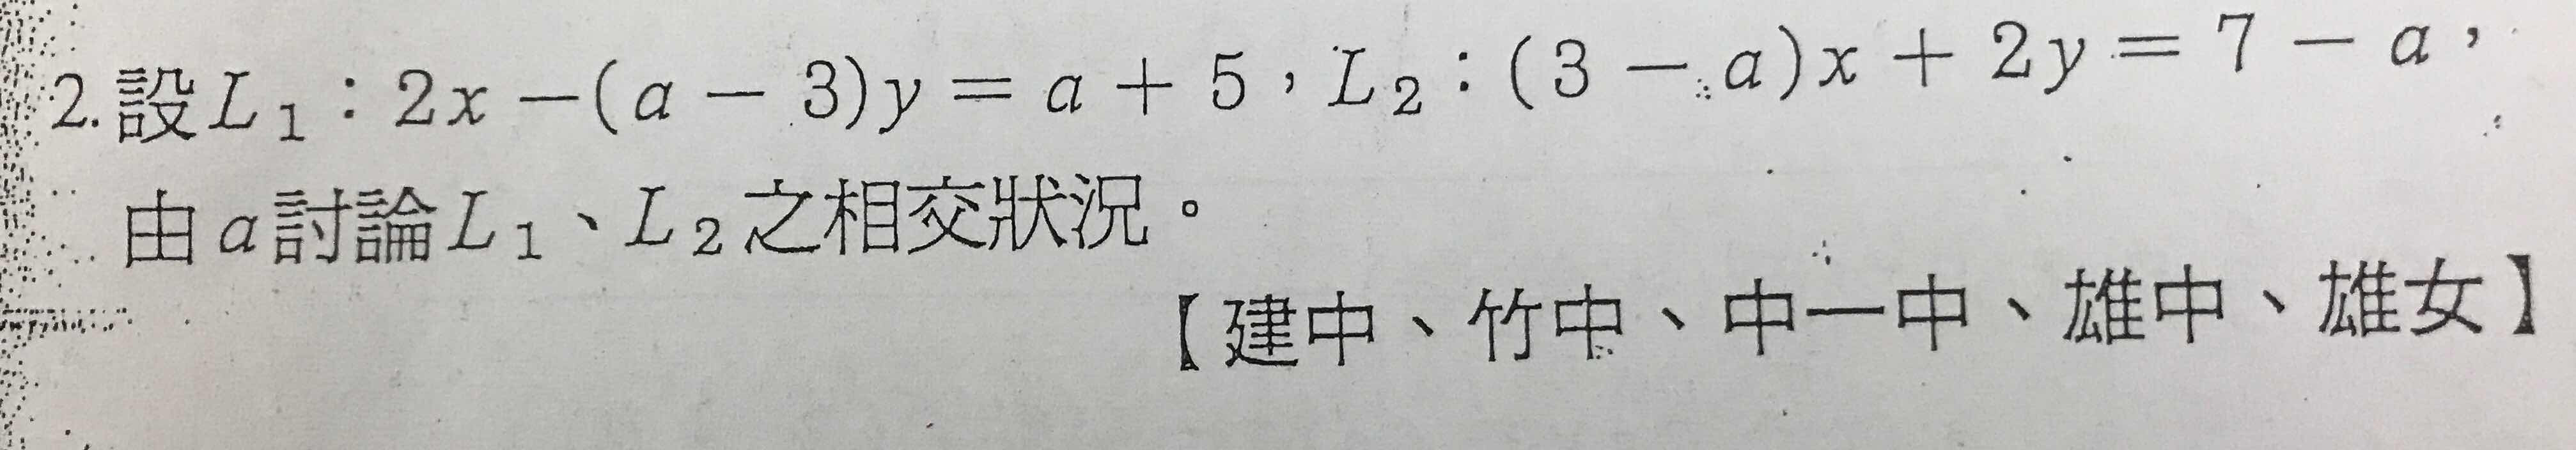 2.設L₁：2x－(a－3)y＝a＋5，L₂：(3－a)x＋2y＝7－a，
由a討論L₁、L₂之相交狀況。
【建中、竹中、中一中、雄中、雄女】